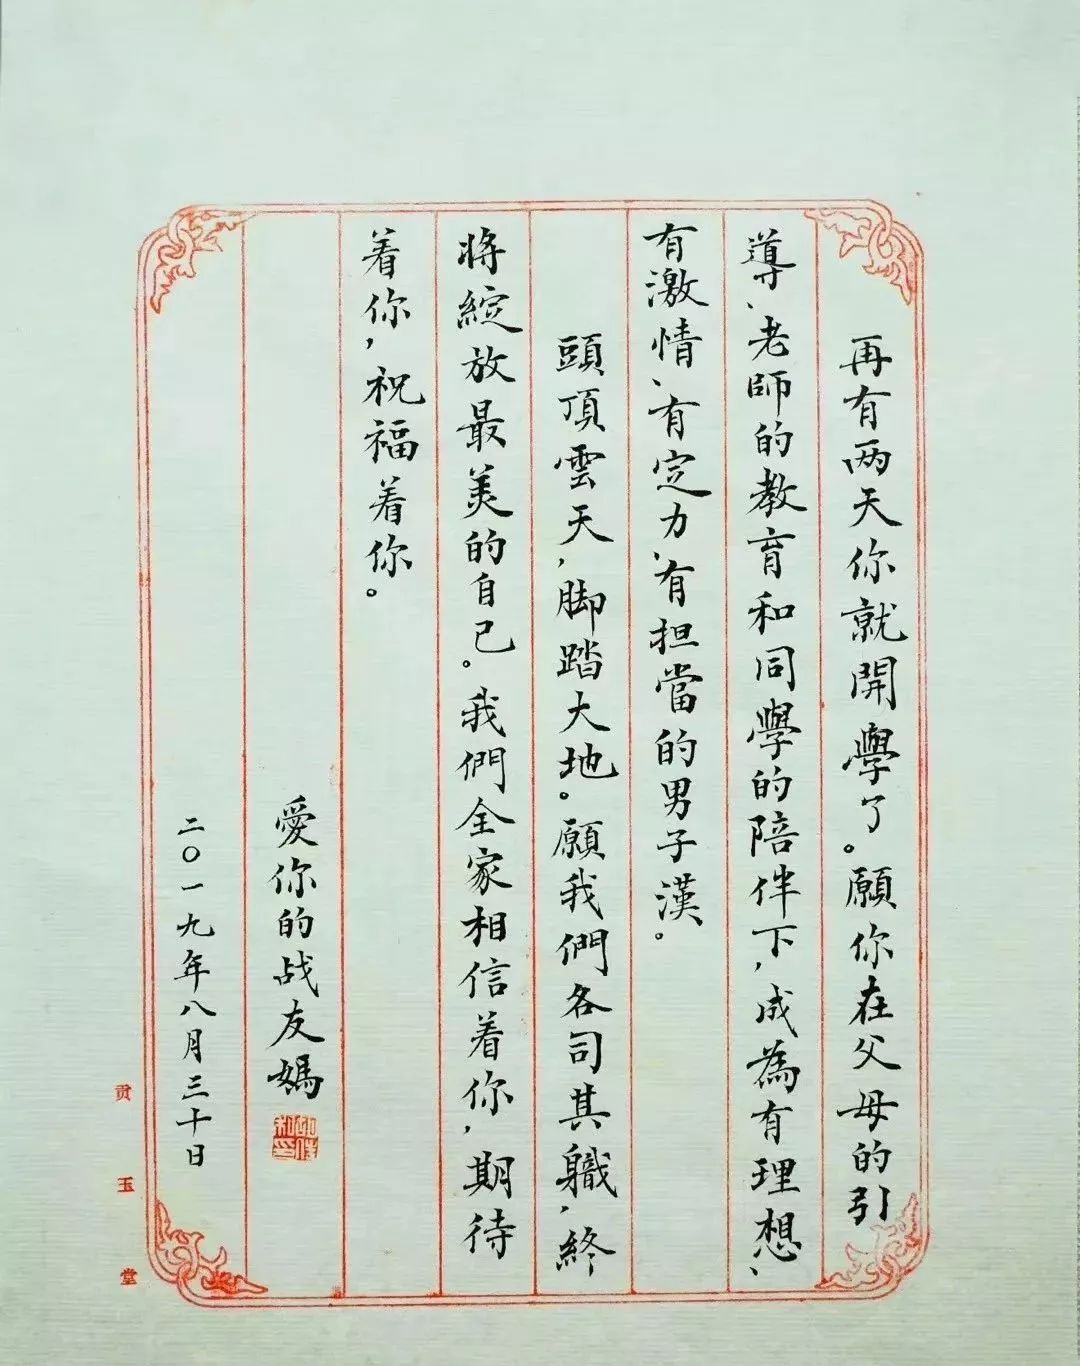 再有两天你就開學了。願你在父母的引
導、老師的教育和同學的陪伴下，成為有理想、
有激情、有定力、有担當的男子漢。
頭頂雲天，脚踏大地。願我們各司其職，終
将綻放最美的自己。我們全家相信着你，期待
着你，祝福着你。
愛你的战友媽
二〇一九年八月三十日
贡玉堂